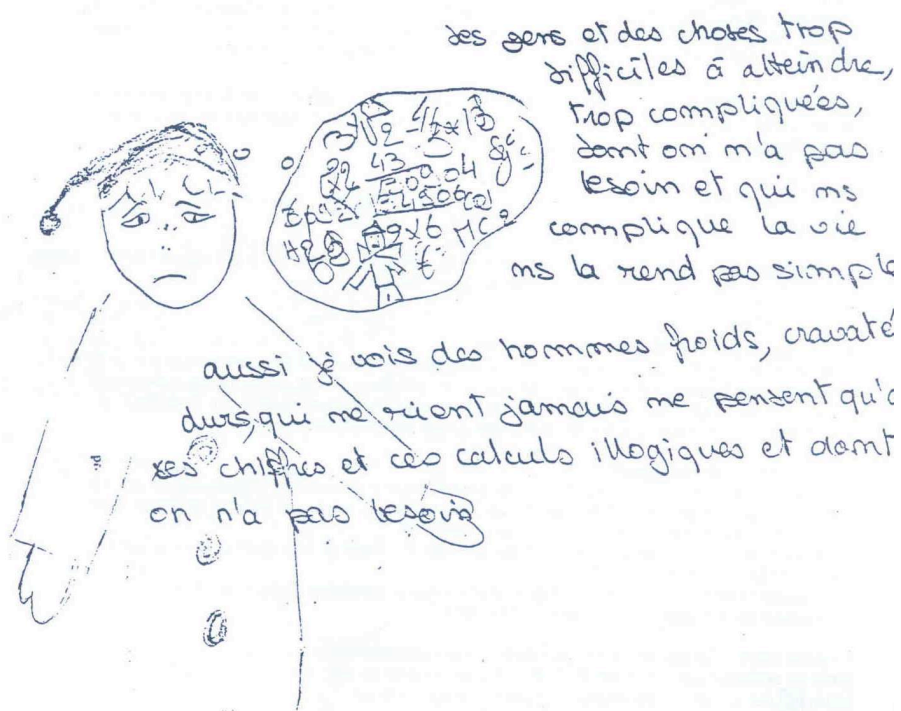 des gens et des choses trop
difficiles à atteindre,
trop compliquées,
dont on n'a pas
besoin et qui ns
complique la vie
ns la rend pas simple
aussi je vois des hommes froids, cravaté
durs, qui ne rient jamais ne pensent qu'à
ses chiffres et ces calculs illogiques et dont
on n'a pas besoin
3√2
43
04
MC²